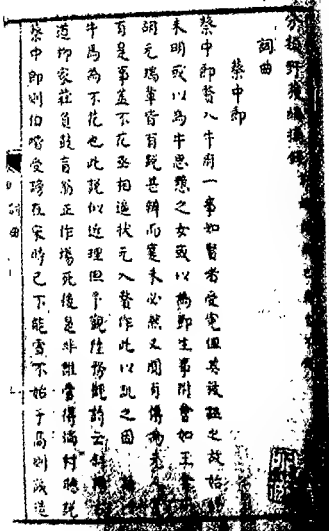 詞曲
蔡中郎
蔡中郎贅入牛府一事如賢者受寃但其被誣之故始
未明或以為牛思黯之女或以為鄧生事附會如王
胡元瑞輩皆有說甚辨而寔未必然又聞有傳為
百是事蓋不花丞相逼狀元入贅作此以譏之因
牛馬為不花也此說似近理但予觀陸務觀詩云斜陽
道柳家莊負鼓盲翁正作塲死後是非誰管得滿村聽說
蔡中郎則伯喈受謗在宋時已不能雪不始于高則誠造